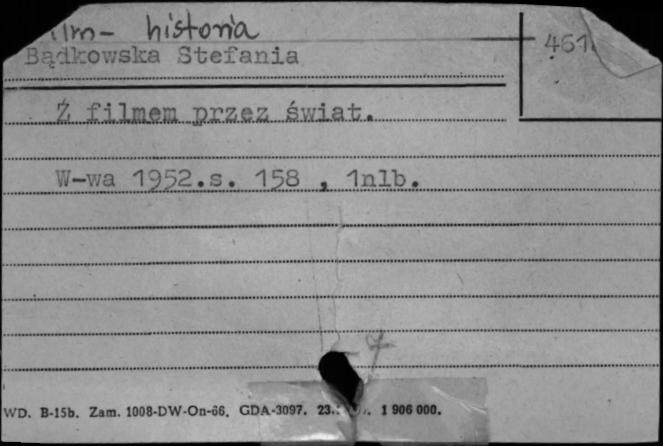 historia
Bądkowska Stefania
461
Z filmem przez świat.
W-wa 1952.s. 158 , 1nlb.
WD. B-15b. Zam. 1008-DW-On-66. GDA-3097. 1 906 000.